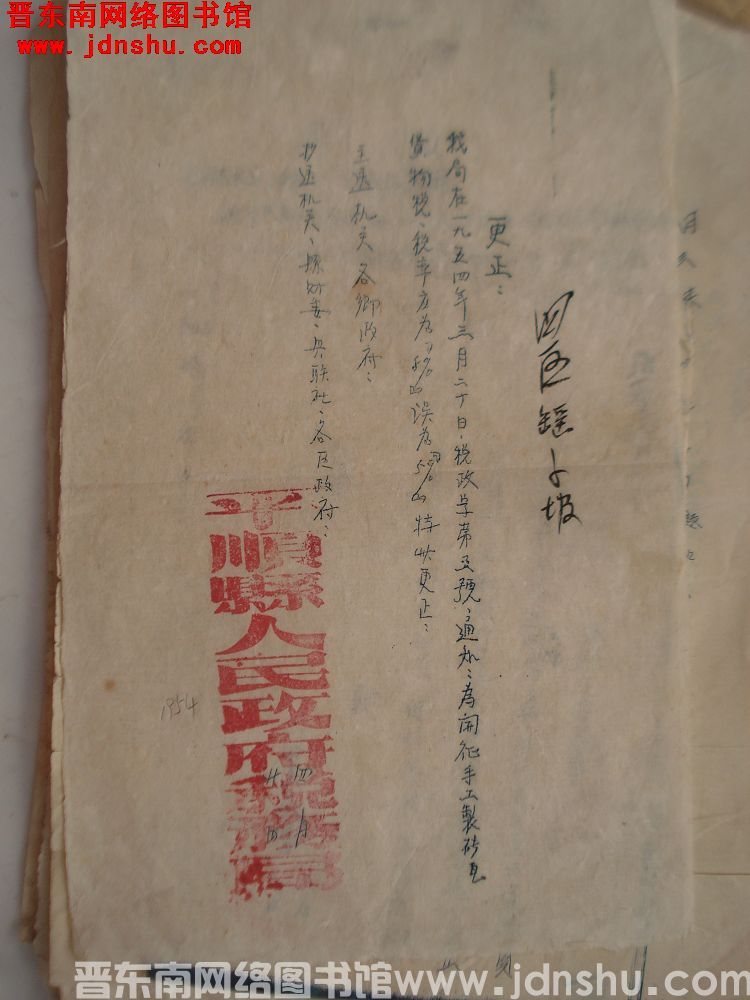 晋东南网络图书馆
www.jdnshu.com
四区
坡
更正：
我局在一九五四年三月二十日，税政字第五號，通知：為開征手工製砖瓦
货物税，税率应為 误為5% 特此更正：
主送机关 各鄉政府：
抄送机关、縣財委、供联社、各区政府：
平順縣人民政府税務局
四月
1954
晋东南网络图书馆www.jdnshu.com